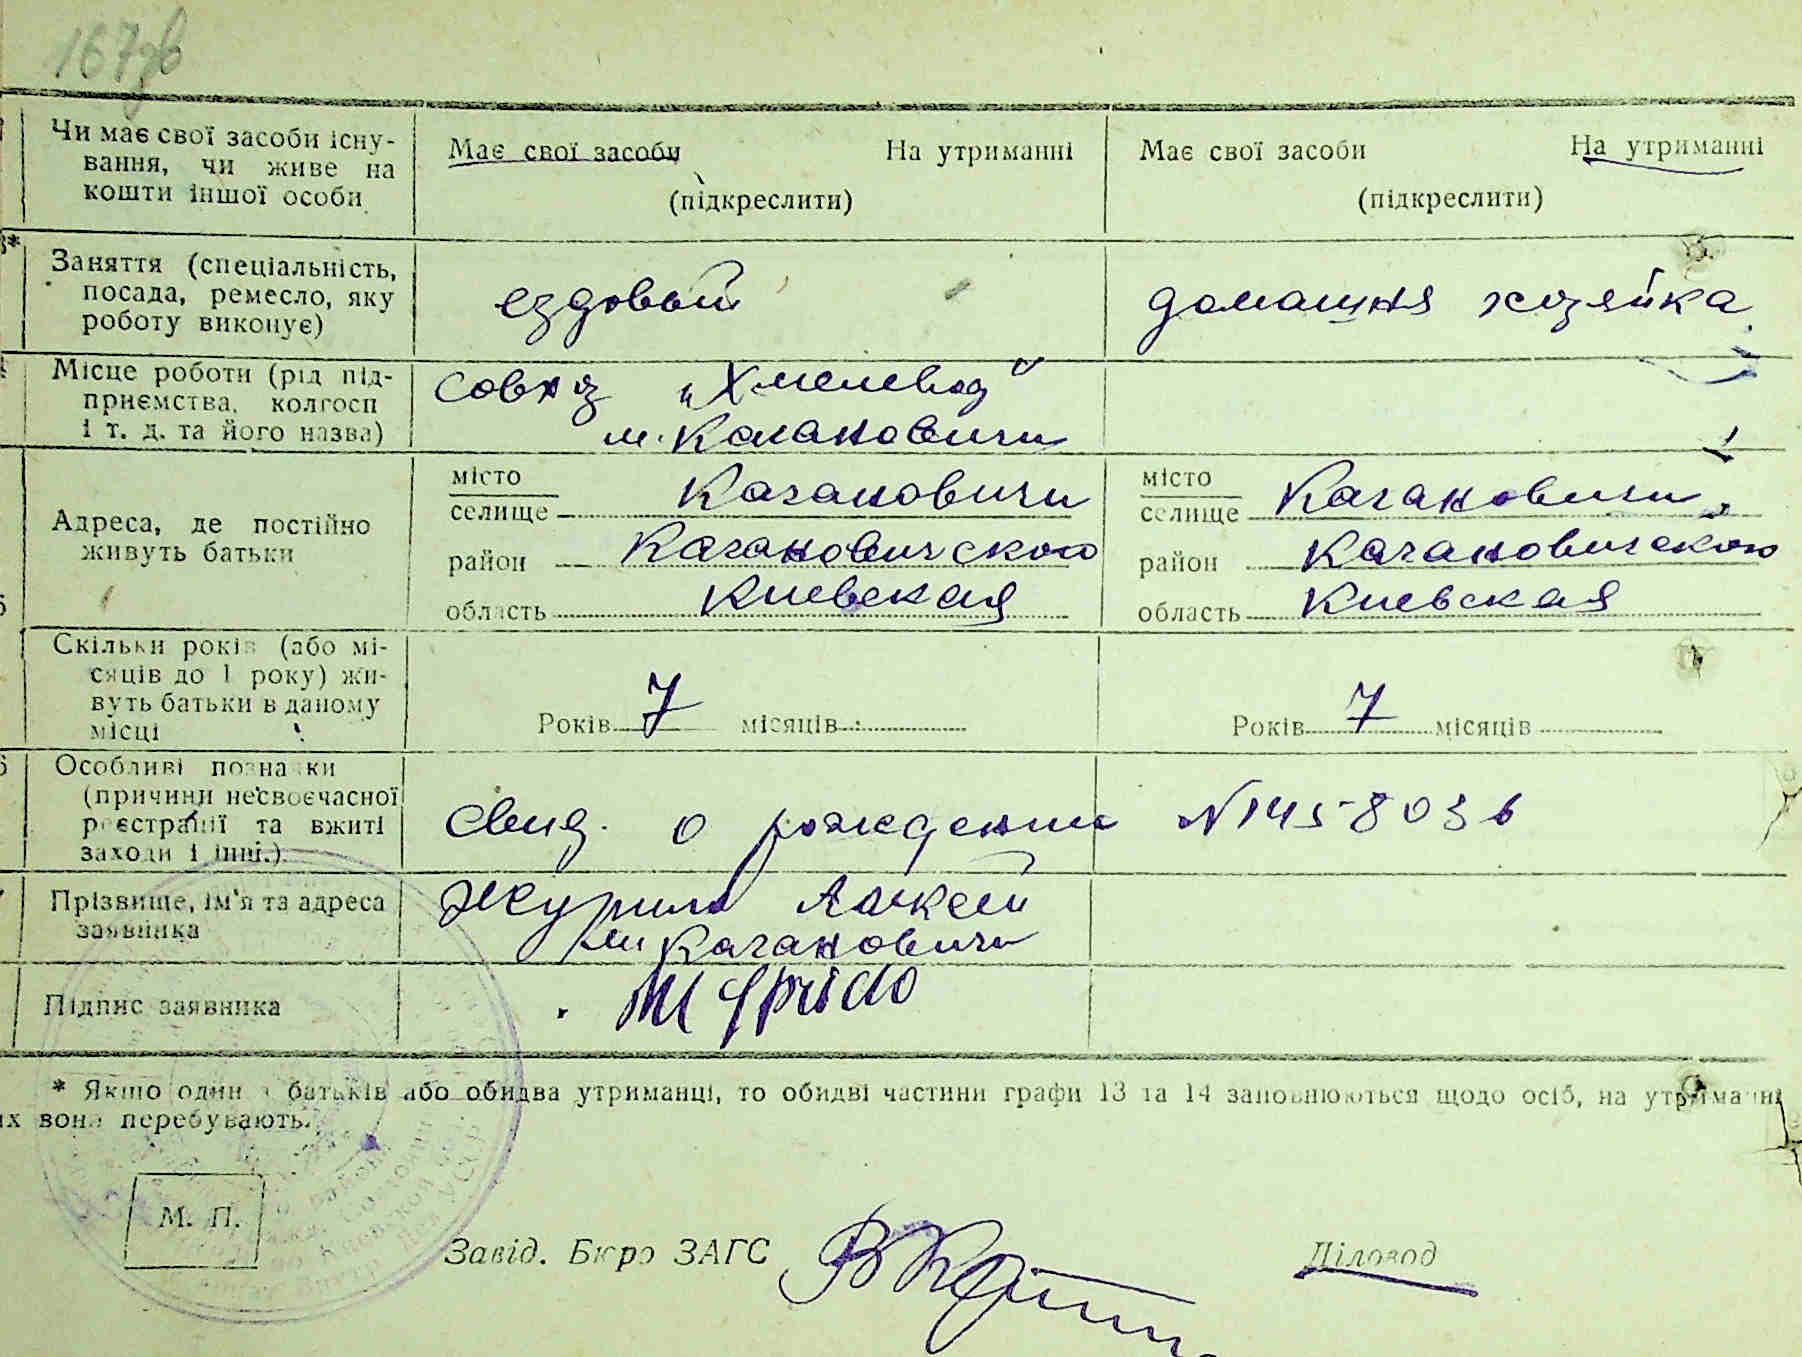 167зв
Чи має свої засоби існу-
вання, чи живе на
кошти іншої особи
Має свої засоби На утриманні
(підкреслити)
Має свої засоби На утриманні
(підкреслити)
Заняття (спеціальність,
посада, ремесло, яку
роботу виконує)
ездовый
домашня хозяйка
Місце роботи (рід під-
приємства, колгосп
і т. д. та його назва)
совхоз „Хмелевод"
м. Кагановичи
Адреса, де постійно
живуть батьки
місто
селище Кагановичи
район Кагановичского
область Киевская
місто
селище Кагановичи
район Кагановичского
область Киевская
Скільки років (або мі-
сяців до 1 року) жи-
вуть батьки в даному
місці
Років 7 місяців
Років 7 місяців
Особливі познаки
(причини несвоєчасної
реєстрації та вжиті
заходи і інш.)
Свид. о рождении № 145803
Прізвище, ім'я та адреса
заявника
Журило Алексей
м. Кагановичи
Підпис заявника
* Якщо один з батьків або обидва утриманці, то обидві частини графи 13 та 14 заповнюються щодо осіб, на утриманні
их вони перебувають.
М. П.
Завід. Бюро ЗАГС
Діловод